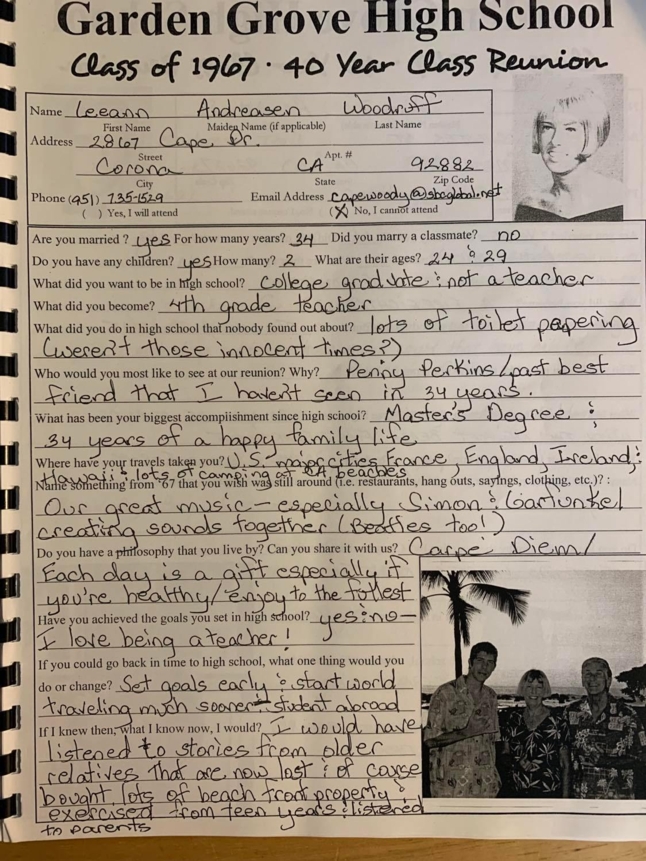 Garden Grove High School
Class of 1967 · 40 Year Class Reunion
Name Leeann Andreasen Woodruff
First Name Maiden Name (if applicable) Last Name
Address 2867 Cape Dr.
Street Apt. #
Corona CA 92882
City State Zip Code
Phone (951) 735-1529 Email Address capewoody@sbcglobal.net
( ) Yes, I will attend (X) No, I cannot attend
Are you married ? yes For how many years? 34 Did you marry a classmate? no
Do you have any children? yes How many? 2 What are their ages? 24 & 29
What did you want to be in high school? college graduate & not a teacher
What did you become? 4th grade teacher
What did you do in high school that nobody found out about? lots of toilet papering
(weren't those innocent times?)
Who would you most like to see at our reunion? Why? Penny Perkins/past best
friend that I haven't seen in 34 years.
What has been your biggest accomplishment since high school? Master's Degree &
34 years of a happy family life
Where have your travels taken you? U.S. major cities France, England, Ireland, &
Hawaii & lots of camping at CA beaches
Name something from '67 that you wish was still around (i.e. restaurants, hang outs, sayings, clothing, etc.)? :
Our great music - especially Simon & Garfunkel
creating sounds together (Beatles too!)
Do you have a philosophy that you live by? Can you share it with us? Carpe Diem/
Each day is a gift especially if
you're healthy/enjoy to the fullest
Have you achieved the goals you set in high school? yes & no -
I love being a teacher!
If you could go back in time to high school, what one thing would you
do or change? Set goals early & start world
traveling much sooner - student abroad
If I knew then, what I know now, I would? I would have
listened to stories from older
relatives that are now lost & of course
bought lots of beach front property &
exercised from teen years & listened
to parents